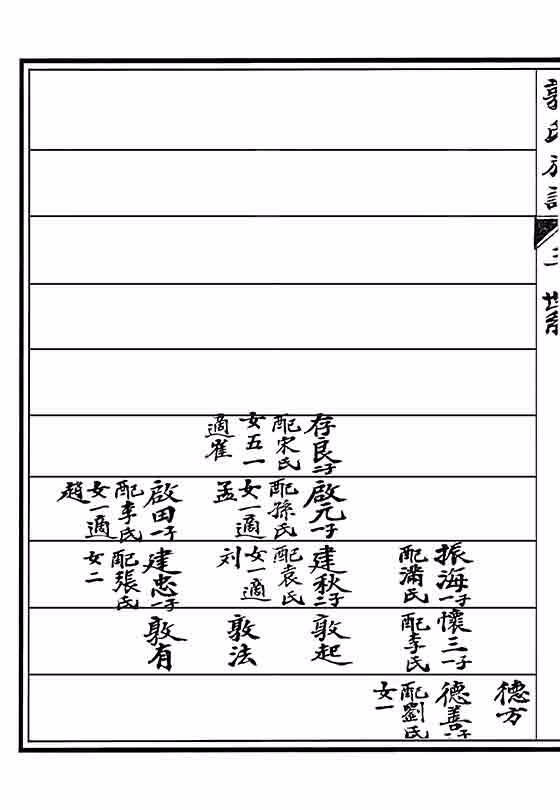 郭氏族譜
三
世系
存良二子
配宋氏
女五一
適崔
啟元一子
配孫氏
女一適
孟
啟田一子
配李氏
女一適
趙
振海一子
配满氏
建秋二子
配袁氏
女一適
刘
建忠一子
配張氏
女二
懷三一子
配李氏
敦起
敦法
敦有
德方
德善一子
配劉氏
女一